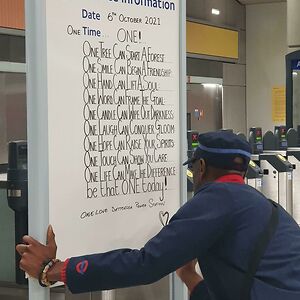 ce Information
Date 6th October 2021
One Time... One!
One Tree Can Start A Forest
One Smile Can Begin A Friendship
One Hand Can Lift A Soul
One Word Can Frame The Goal
One Candle Can Wipe Out Darkness
One Laugh Can Conquer Gloom
One Hope Can Raise Your Spirits
One Touch Can Show You Care
One Life Can Make The Difference
Be that ONE today!
One Love Battersea Power Station